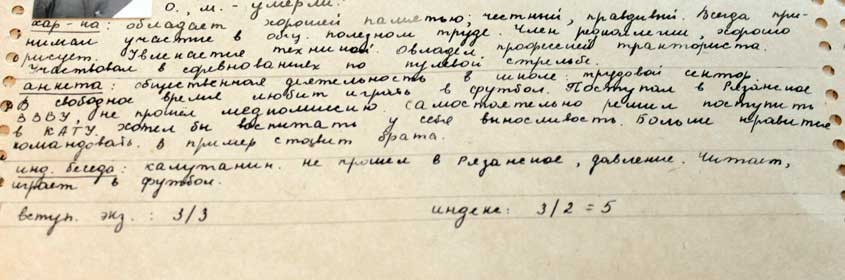 о., м. - умерли.
хар-ка: обладает хорошей памятью, честный, правдивый. Всегда при-
нимал участие в общ. полезном труде. Член редколлегии, хорошо
рисует. Увлекается техникой. овладел профессией тракториста.
Участвовал в соревнованиях по пулевой стрельбе.
анкета: общественная деятельность в школе: трудовой сектор
В свободное время любит играть в футбол. Поступал в Рязанское
ВВВУ, не прошел медкомиссию. Самостоятельно решил поступить
в КАТУ. хотел бы воспитать у себя выносливость. Больше нравится
командовать. в пример ставит брата.
инд. беседа: калужанин. не прошел в Рязанское, давление. Читает,
играет в футбол.
вступ. экз.: 3/3 индекс: 3/2 = 5